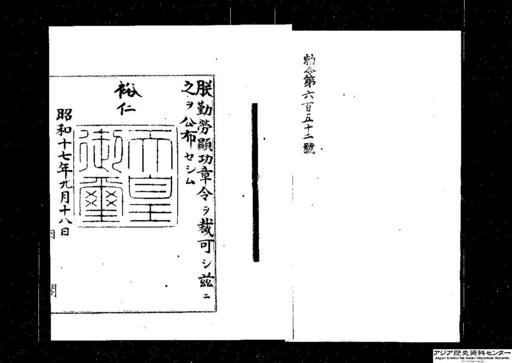 勅令第六百五十二號
朕勤勞顯功章令ヲ裁可シ茲ニ
之ヲ公布セシム
裕仁
天皇
御璽
昭和十七年九月十八日
内閣
アジア歴史資料センター
Japan Center for Asian Historical Records